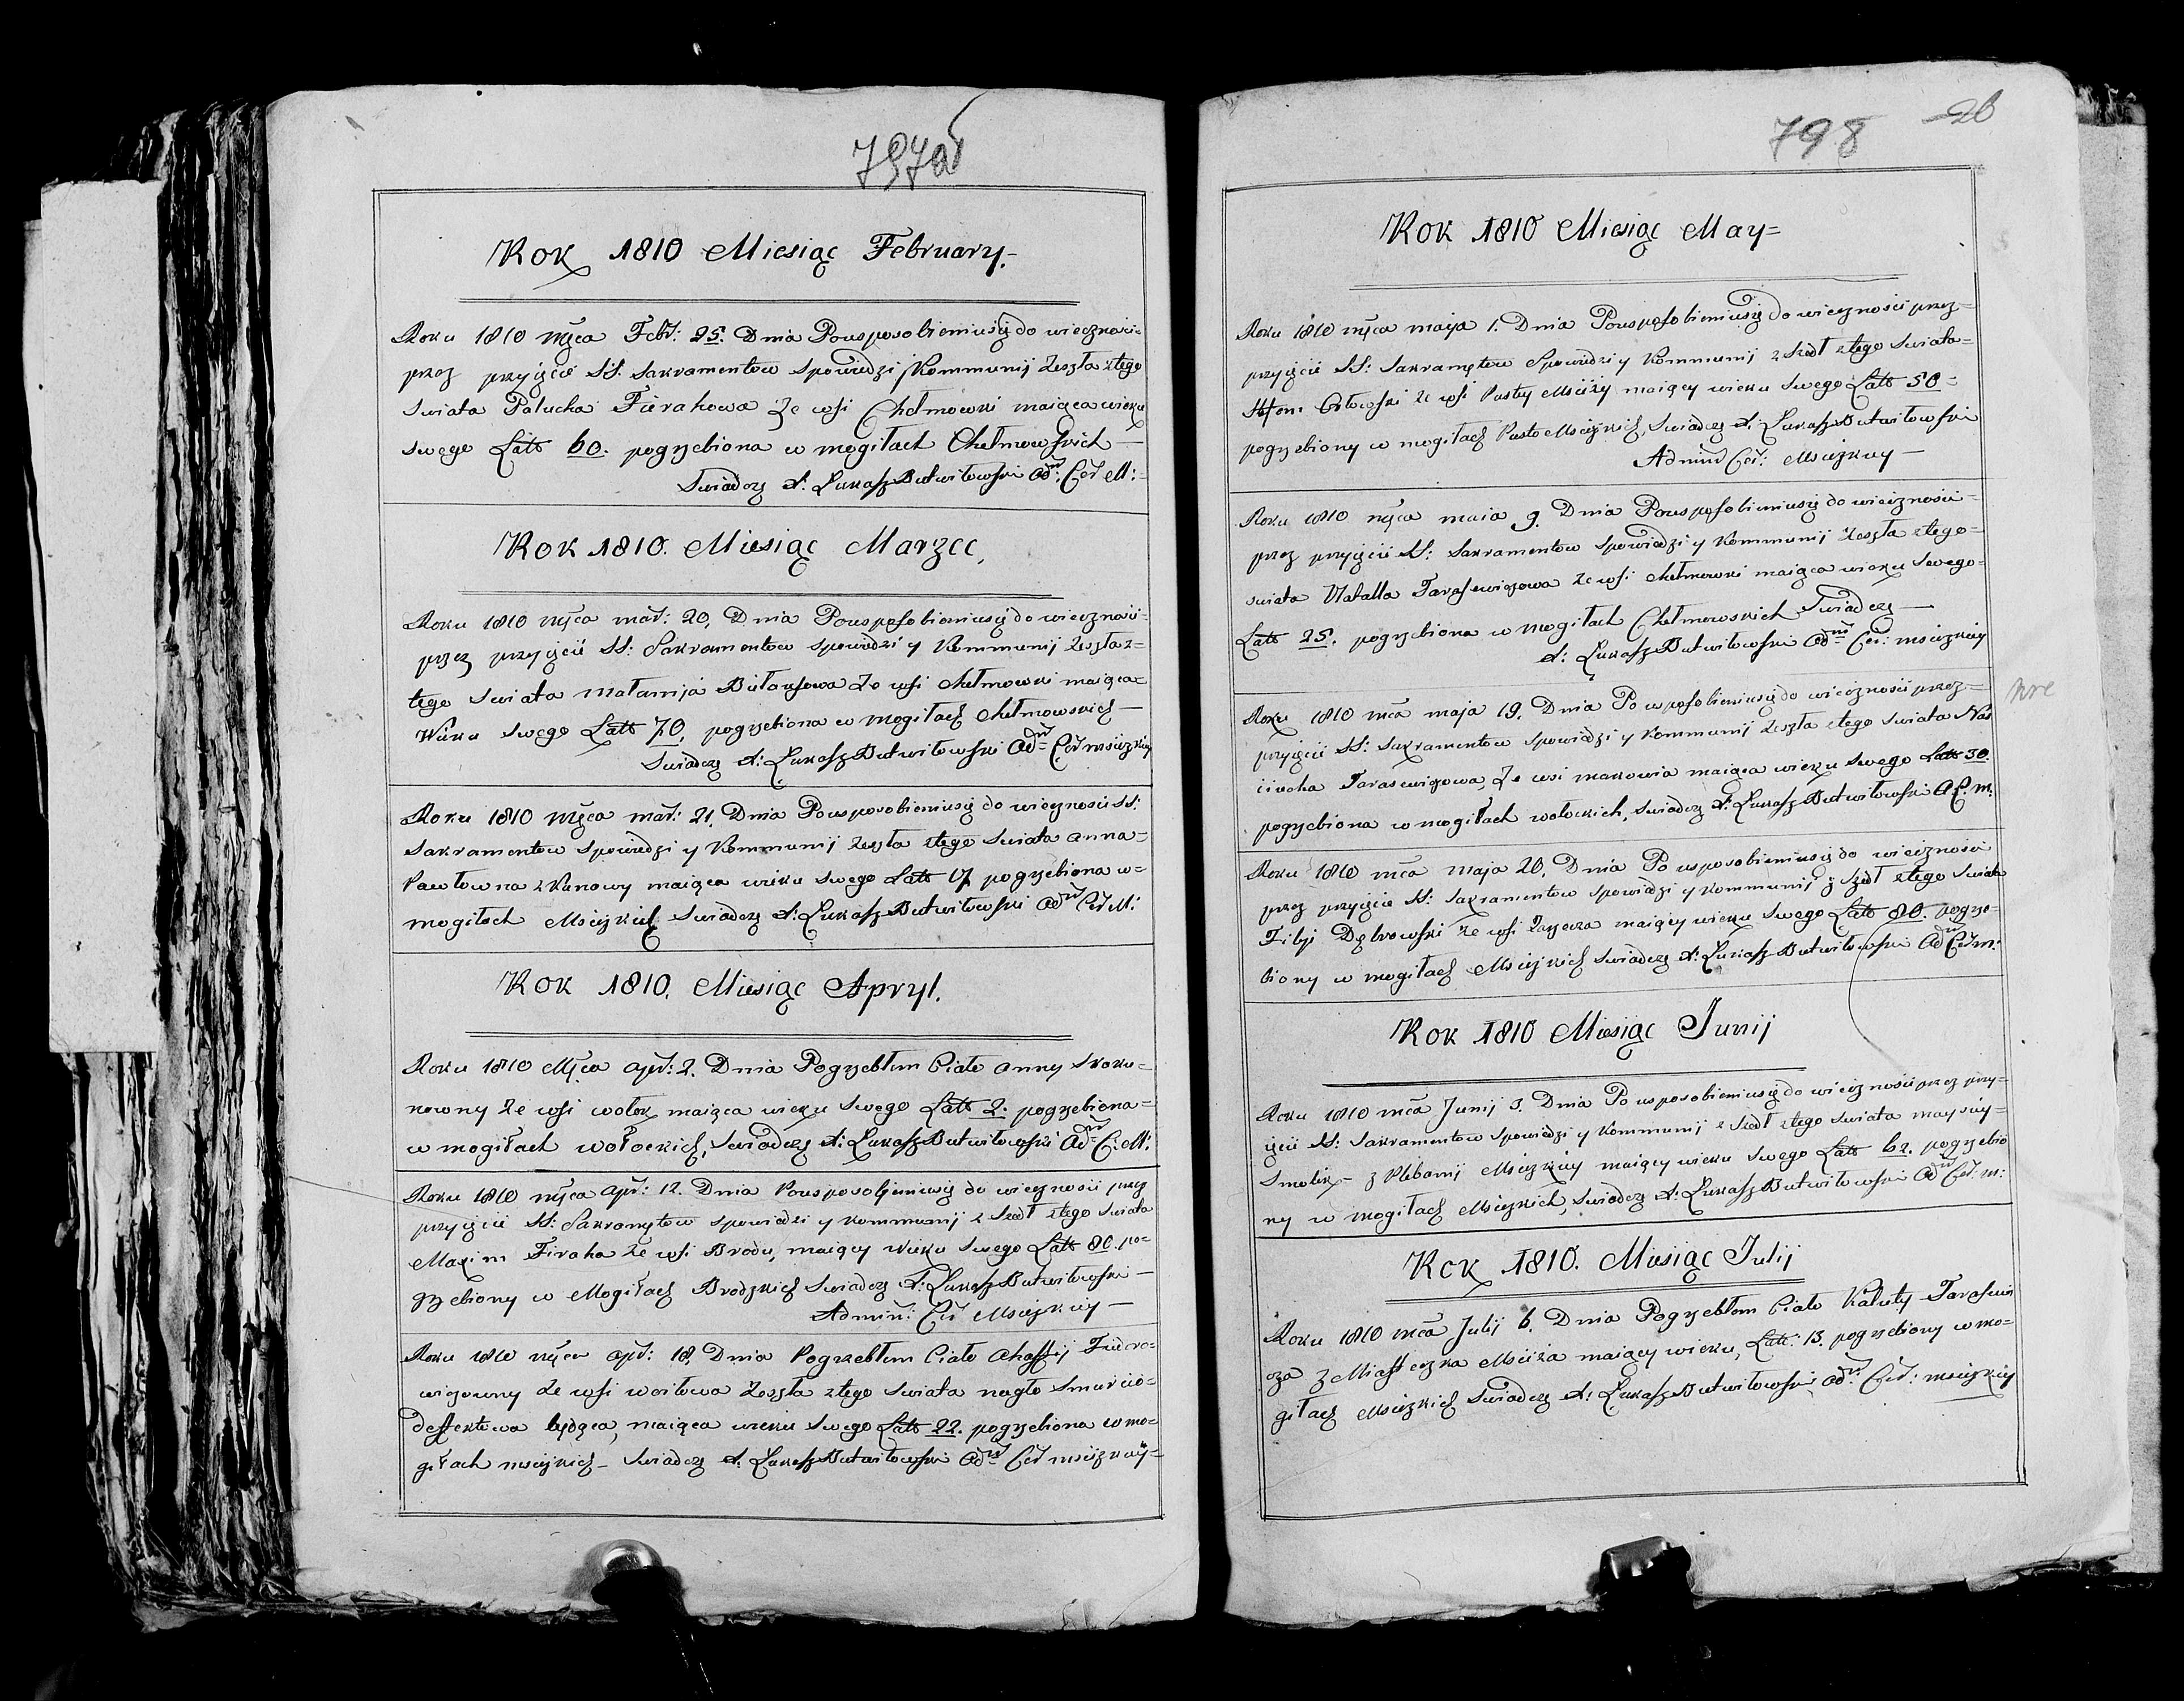 797об
Rok 1810 Miesiąc February.
Roku 1810 Mşca Febr: 25. Dnia Pousposobieniusię do wieczności=
przez przyięcie SS. Sakramentow Spowiedzi y Kommunij Zeszła ztego
Swiata Palucha Firahowa Ze wsi Chełmowki maiąca wieku
swego Latt 60. pogrzebiona w mogiłach Chełmowskich —
Swiadczy X: Łukasz Butwiłowski Adm: Cer M:=
Rok 1810. Miesiąc Marzec,
Roku 1810 Mşca mar: 20, Dnia Pousposobieniusię do wieczności=
przez przyięcie SS: Sakramentow Spowiedzi y Kommunij Zeszła z=
tego Swiata Małanija Bułausowa Ze wsi Chełmowki maiąca=
Wieku Swego Latt 70, pogrzebiona w mogiłach Chełmowskich —
Swiadczy X: Łukasz Butwiłowski Adm Cer Msciżskiey
Roku 1810 Mşca mar: 21, Dnia Pousposobieniusię do wieczności SS:
Sakramentow Spowiedzi y Kommunij Zeszła ztego Swiata Anna=
Pawłowna z Kunowy maiąca wieku Swego Latt 17 pogrzebiona w=
mogiłach Msciżkich Swiadczy X: Łukasz Butwiłowski Adm Cer M:
Rok 1810. Miesiąc Apryl.
Roku 1810 Mşca apr: 2. Dnia Pogrzebłem Ciało Anny Skaku=
nowny Ze wsi Wołok maiąca wieku Swego Latt 2. pogrzebiona=
w mogiłach Wołockich, Swiadczy X: Łukasz Butwiłowski Adm C: M:
Roku 1810 Mşca Apr: 12. Dnia Pousposobieniusię do wieczności przez
przyięcie SS: Sakramętow Spowiedzi y Kommunij z Szedł ztego Swiata
Maxim Firaha Ze wsi Brodu, maiący Wieku Swego Latt 80. po=
grzebiony w Mogiłach Brodzkich Swiadczy X: Łukasz Butwiłowski —
Admin: Cer Msciżkiey —
Roku 1810 Mşca apr: 18, Dnia Pogrzebłem Ciało Ahaffij Fiedro=
wiczowny Ze wsi Woiłowa Zeszła ztego Swiata nagło Smiercio=
deffektowa będąca, maiąca wieku Swego Latt 22. pogrzebiona w mo=
giłach msciżkich — Swiadczy X: Łukasz Butwiłowski Adm Cer msciżkiey=
798 26
Rok 1810 Miesiąc May=
Roku 1810 Mşca maija 1. Dnia Pousposobieniusię do wieczności przez=
przyięcie SS: Sakramętow Spowiedzi y Kommunij z Szedł ztego Swiata=
Orłowski Ze wsi Pusty Msciży maiący wieku Swego Latt 50=
pogrzebiony w mogiłach PustoMsciżkich, Swiadczy X: Łukasz Butwiłowski
Admin Cer: Msciżkiey —
Roku 1810 Mşca maia 9. Dnia Pousposobieniusię do wieczności=
przez przyięcie SS: Sakramentow Spowiedzi y Kommunij Zeszła ztego=
Swiata Natalla Tarasewiczowa Ze wsi Chełmowki maiąca wieku Swego=
Latt 25. pogrzebiona w mogiłach Chełmowskich Swiadczy —
X: Łukasz Butwiłowski Adm Cer: msciżkiey
Roku 1810 mca maja 19. Dnia Pousposobieniusię do wieczności przez=
przyięcie SS: Sakramentow Spowiedzi y Kommunij Zeszła ztego Swiata Nas
ciucha Tarasewiczowa, Ze wsi makowia maiąca wieku Swego Latt 30.
pogrzebiona w mogiłach wołockich, Swiadczy X: Łukasz Butwiłowski A C: m:
Roku 1810 mca maja 20. Dnia Pousposobieniusię do wieczności
przez przyięcie SS: Sakramentow Spowiedzi y Kommunij z Szedł ztego Swiata
Filip Dębrowski Ze wsi maiący wieku Swego Latt 80. pogrze=
biony w mogiłach Msciżkich Swiadczy X: Łukasz Butwiłowski Adm Cer m:
Rok 1810 Miesiąc Junij
Roku 1810 mca Junij 3. Dnia Pousposobieniusię do wieczności przez przy=
ięcie SS: Sakramentow Spowiedzi y Kommunij z Szedł ztego Swiata
Smolik — z Plebanij Msciżkiey maiący wieku Swego Latt 62. pogrzebio
ny w mogiłach Msciżkich, Swiadczy X: Łukasz Butwiłowski Adm Cer: m:
Rok 1810. Miesiąc Julij
Roku 1810 mca Julij 6. Dnia Pogrzebłem Ciało Kaluty Tarasewi
cza z Miasteczka Msciża maiący wieku, Latt: 13. pogrzebiony w mo=
giłach Msciżkich Swiadczy X: Łukasz Butwiłowski Adm: Cer: msciżkiey